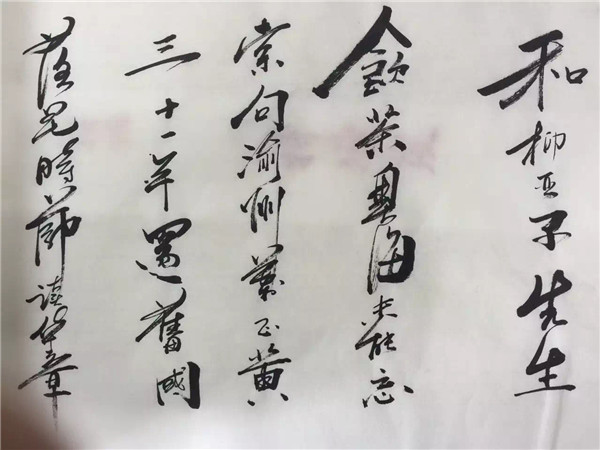 和柳亚子先生
飲茶粤海未能忘
索句渝州葉正黄
三十一年還舊國
落花時節讀華章